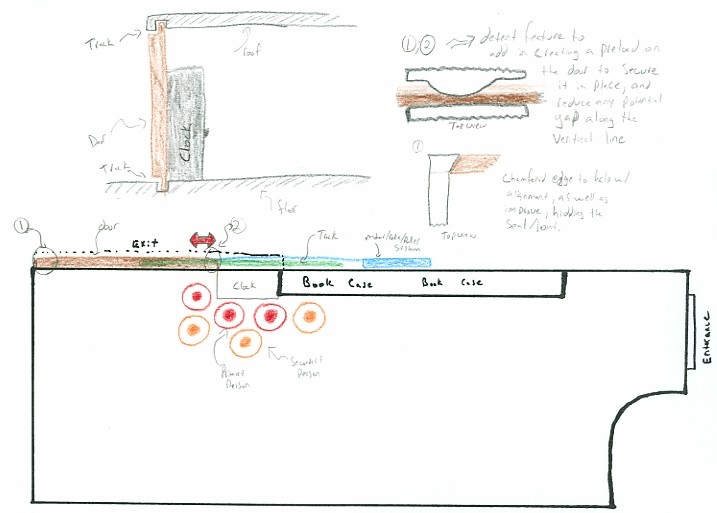 Track
roof
Door
Clock
Track
floor
①,② detent feature to
add in creating a preload on
the door to secure
it in place, and
reduce any potential
gap along the
vertical line
Top view
①
Chamferd edge to help w/
alignment, as well as
improve, hidding the
Seal/joint.
Top view
①
door
Exit
②
Track
System
Clock
Book Case
Book Case
Person
Person
Entrance